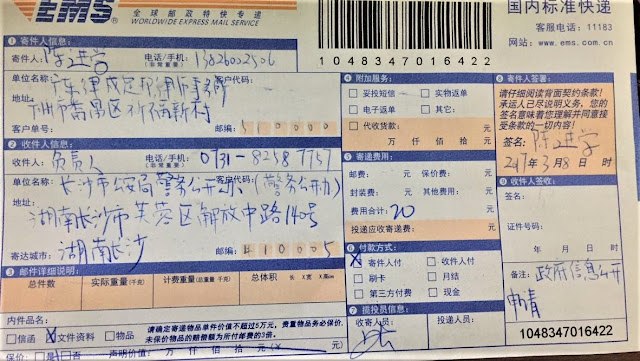 EMS
全球邮政特快专递
WORLDWIDE EXPRESS MAIL SERVICE
国内标准快递
客户服务电话：11183
网站：www.ems.com.cn
1048347016422
① 寄件人信息：
寄件人：陈进学 电话/手机：13826002506
(非常重要)
单位名称：广东律成定邦律师事务所 客户代码：
地址：广州市番禺区
客户单号： 邮编：510000
② 收件人信息：
收件人：负责人 电话/手机：0731-82587757
(非常重要)
单位名称：长沙市公安局警务公开办（警务公开办） 客户代码：
地址：湖南长沙市芙蓉区解放中路140号
寄达城市：湖南长沙 邮编：410005
③ 邮件详细说明：
总件数 实际重量(千克) 计费重量(总重量 千克) 总体积 长 X 宽 X 高cm
内件品名：
信函 X 文件资料 物品
请确定寄递物品单件价值不超过5万元，贵重物品务必保价，
未保价物品的赔偿额为所付邮费的3倍。
保价：是 否 声明价值： 万 仟 佰 拾 元
④ 附加服务：
妥投短信 实物返单
电子返单 其它：
代收货款： 元
万 仟 佰 拾 元
⑤ 寄递费用：
邮费： 元 保价费： 元
封装费： 元 其他费用： 元
费用合计：20 元
投递应收寄递费： 元
⑥ 付款方式：
X 寄件人付 收件人付
刷卡 月结
第三方付费 现金
⑦ 揽投员信息：
收寄人员： 投递人员：
⑧ 寄件人签署：
请仔细阅读背面契约条款！
承运人已尽说明义务，您的
签名意味着您理解并同意接
受条款的一切内容！
签名：陈进学
2017年3月8日 时
⑨ 收件人签收：
签名：
证件号码：
年 月 日 时
备注：政府信息公开
申请
1048347016422